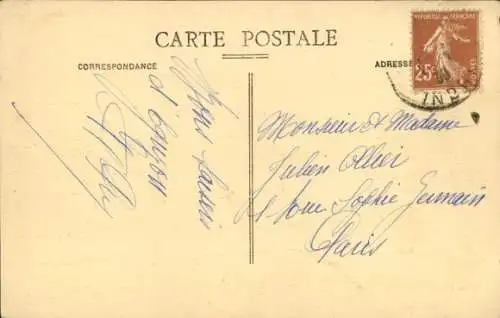 CARTE POSTALE
CORRESPONDANCE
ADRESSE
REPUBLIQUE FRANCAISE
25c
POSTES
IND
Bons baisers
d'Auzon
Monsieur et Madame
Julien Ollier
rue Sophie Germain
Paris